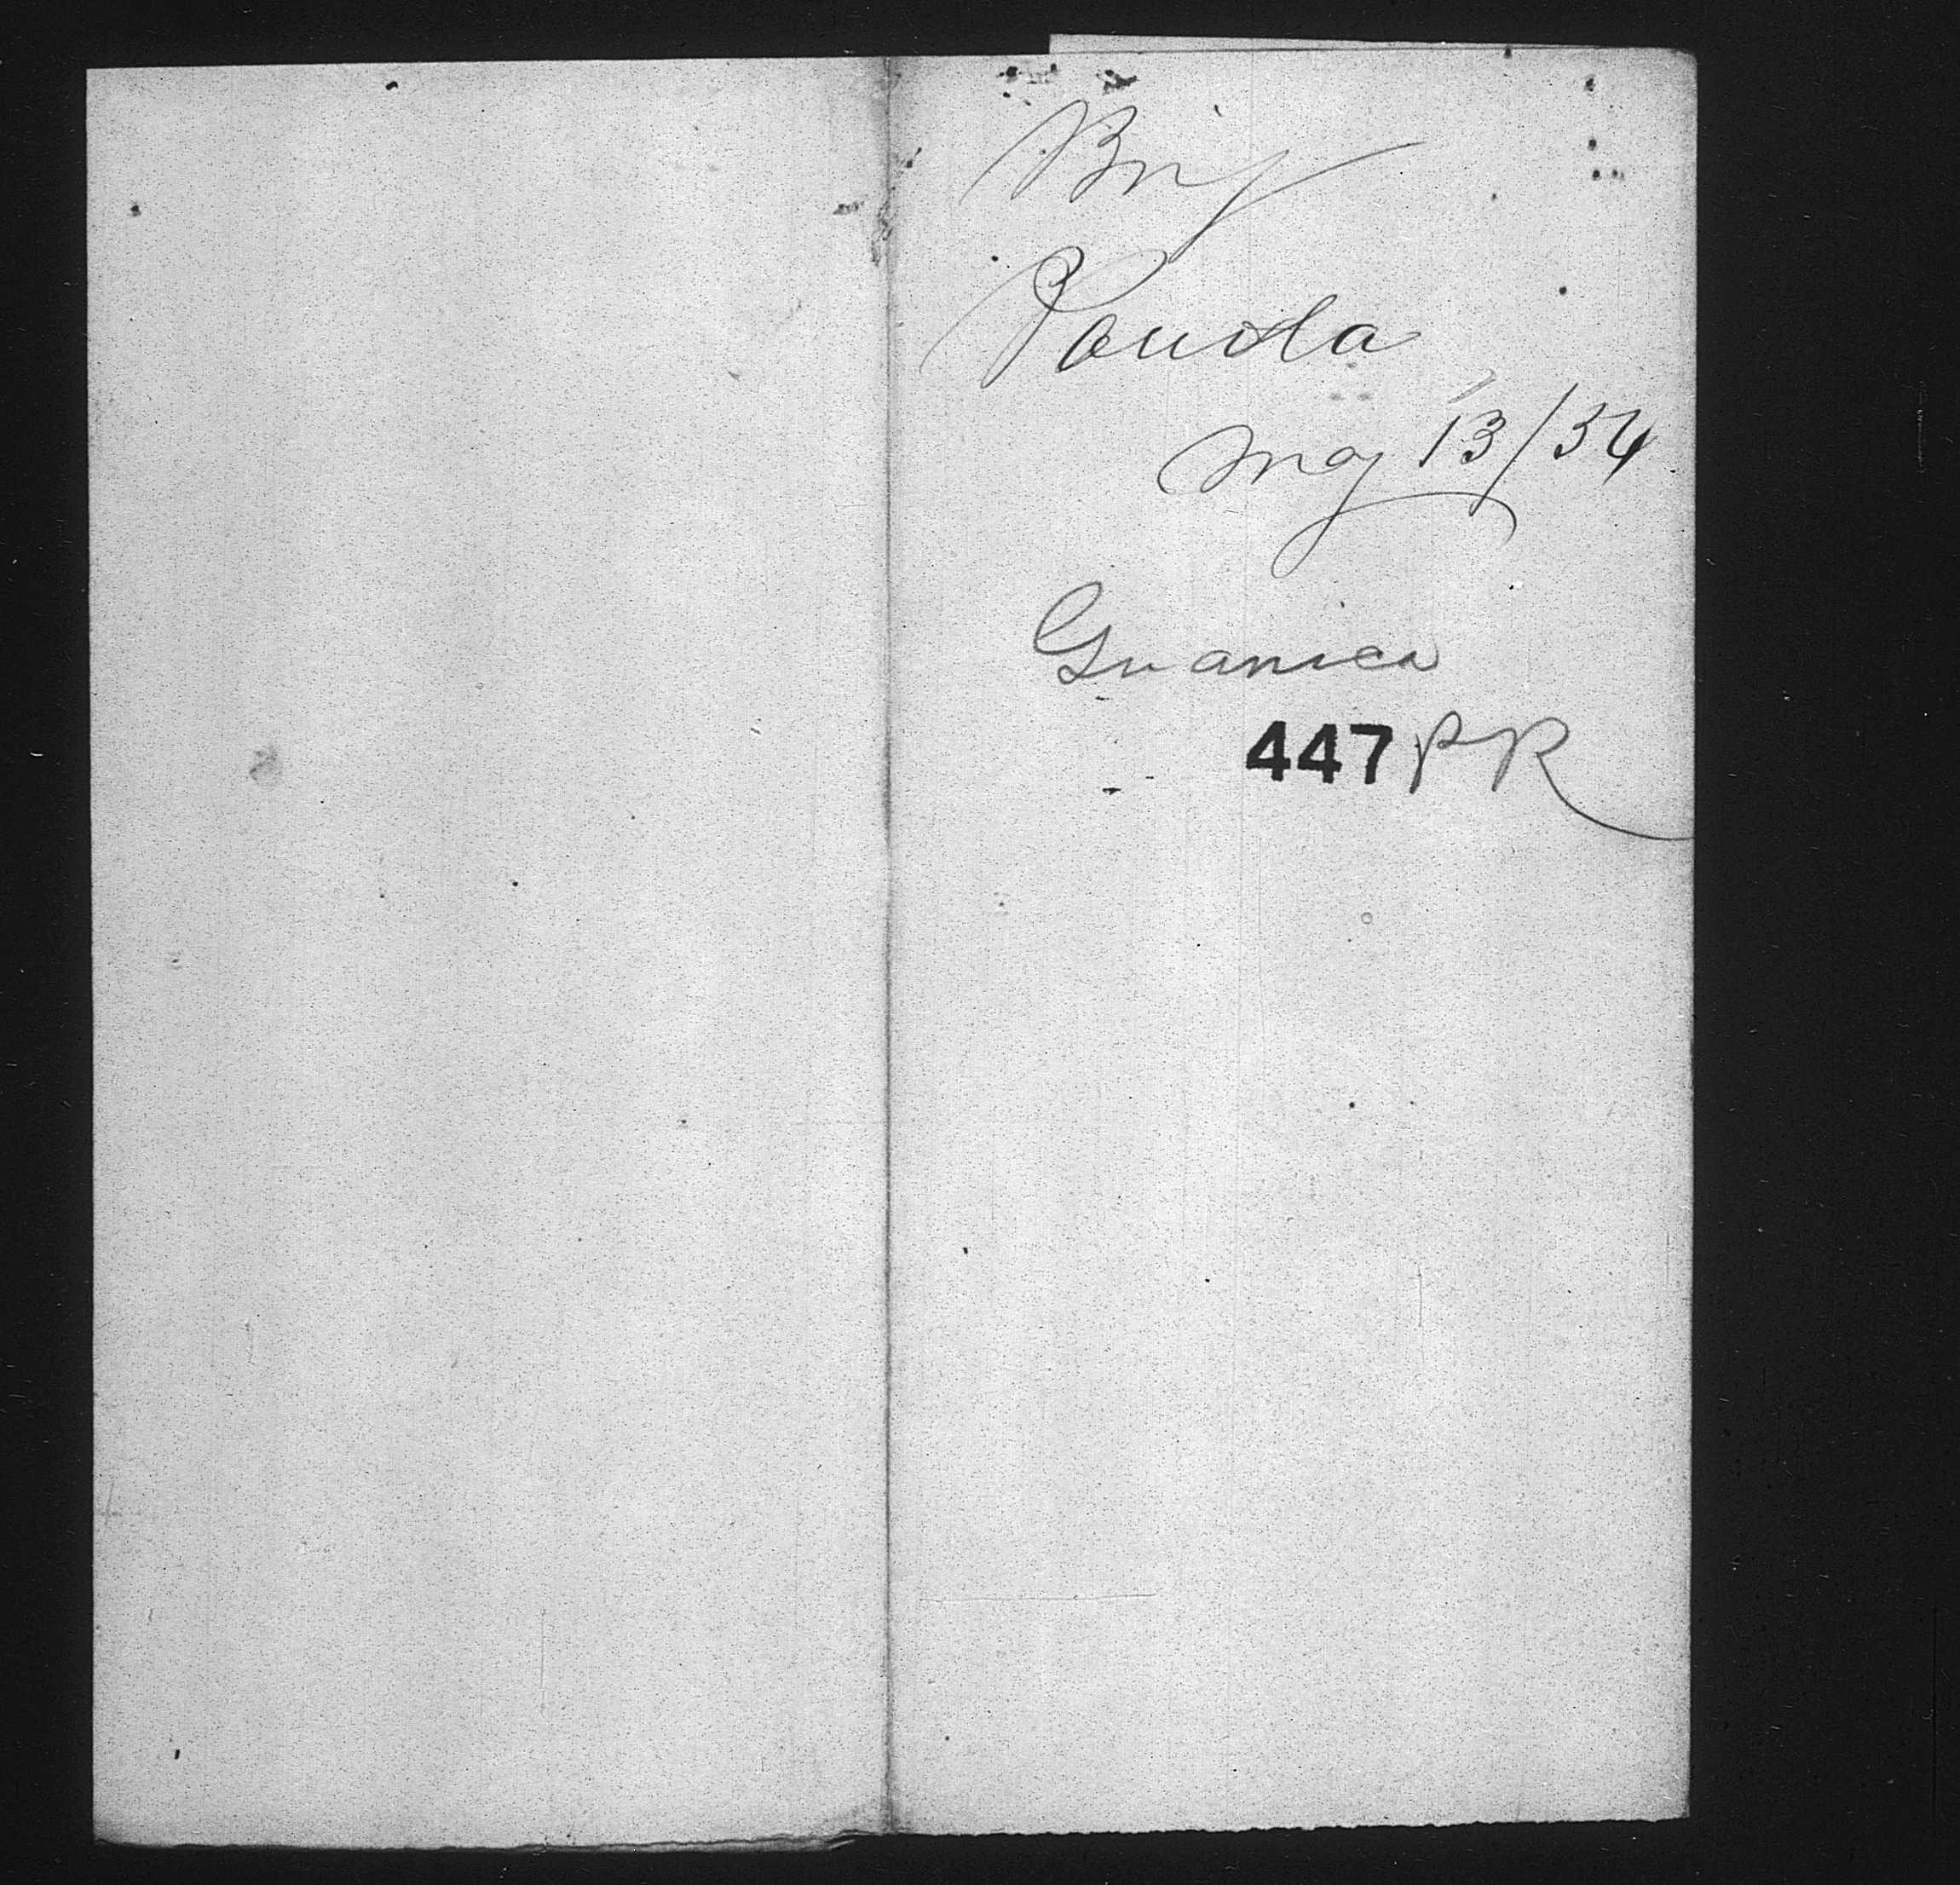 Brig
Pauda
May 13/54
Guanica
447 PR